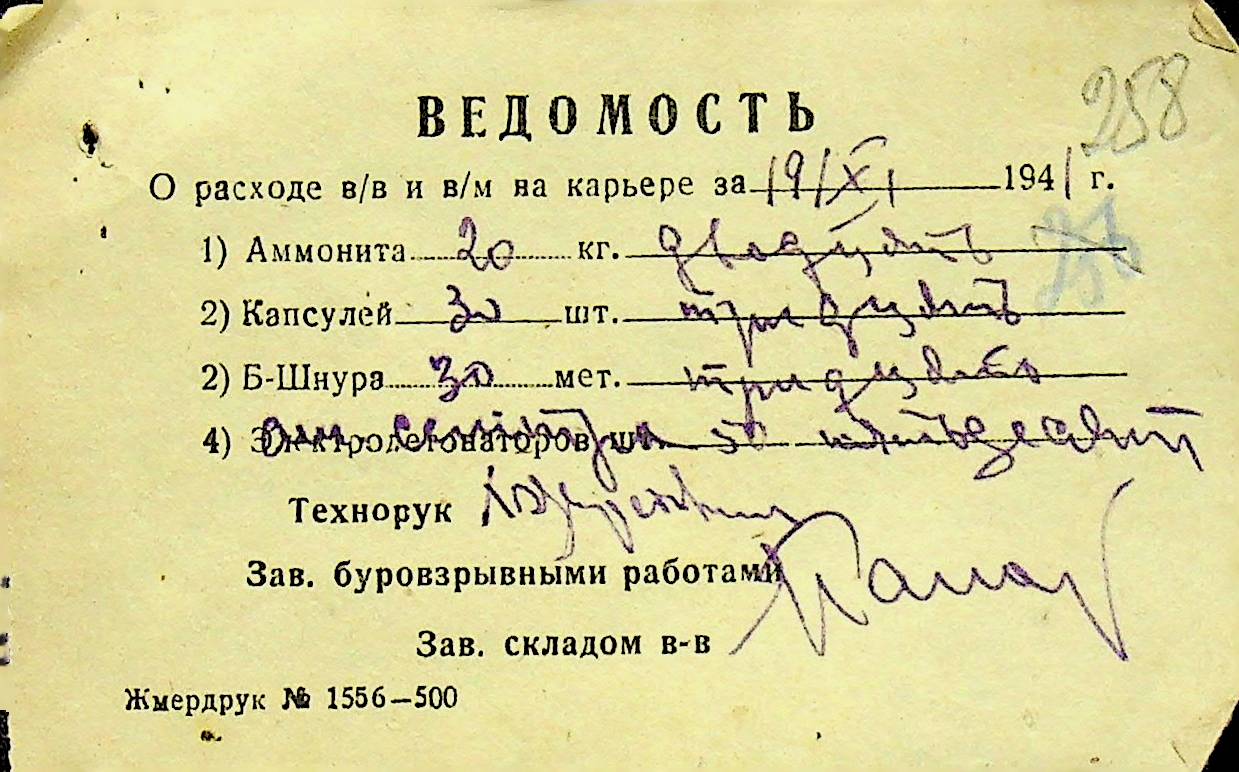 258
ВЕДОМОСТЬ
О расходе в/в и в/м на карьере за 19/XI 1941 г.
1) Аммонита 20 кг. двадцать
2) Капсулей 30 шт. тридцать
2) Б-Шнура 30 мет. тридцать
4) Электродетонаторов шт. 50 пятьдесят
Технорук
Зав. буровзрывными работами
Зав. складом в-в
Жмердрук № 1556—500